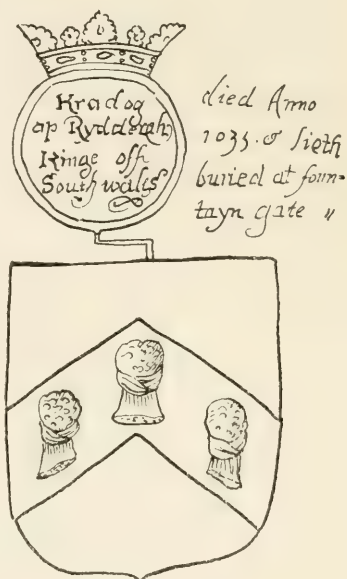 Kradog
ap Ryddrah
Kinge off
South wales
died Anno
1035. & lieth
buried at foun-
tayn gate "